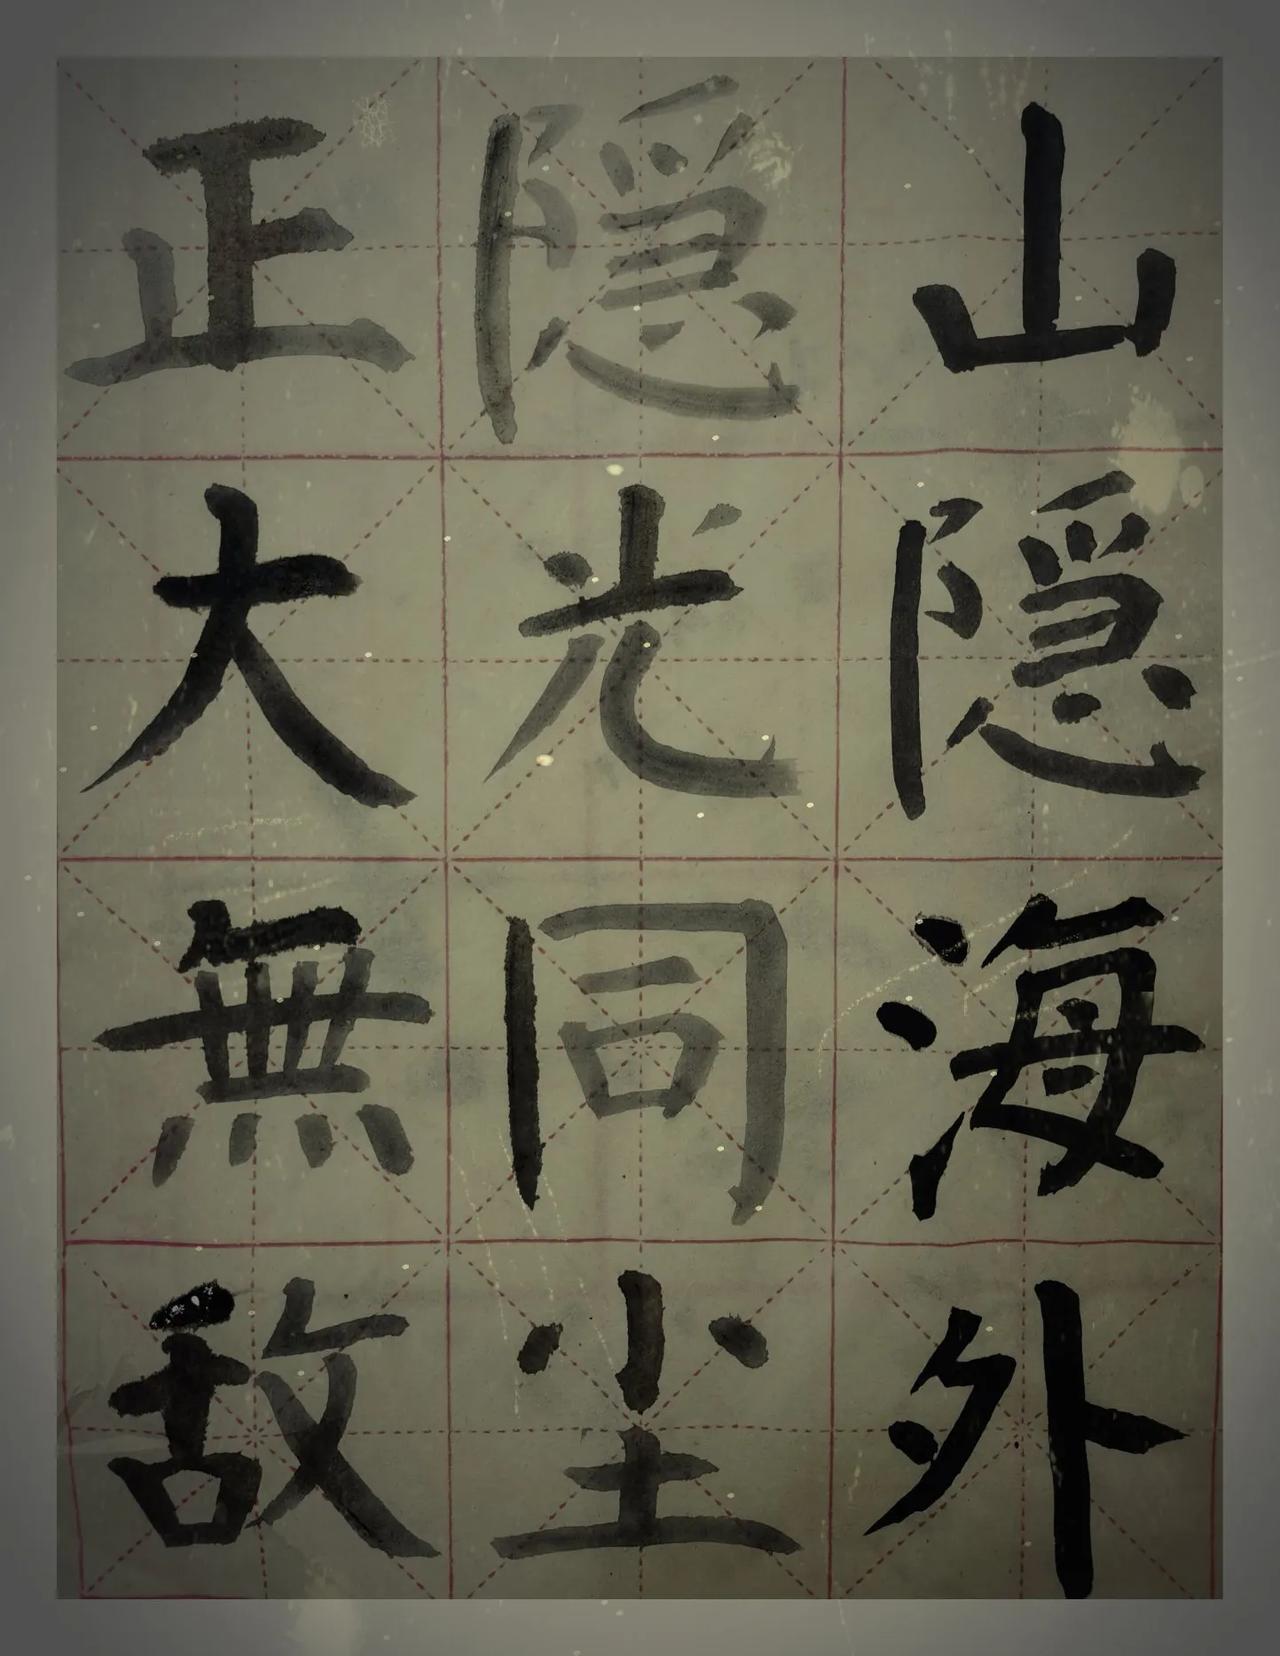 山隱海外
隱光同尘
正大無敌